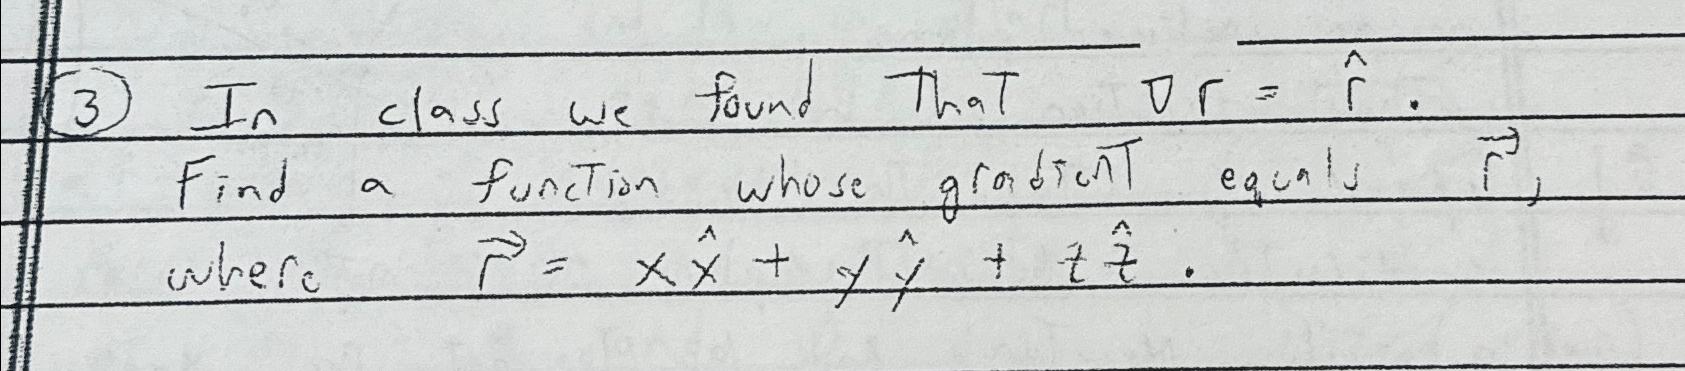 ③ In class we found that ∇r = r̂.
Find a function whose gradient equals r⃗,
where r⃗ = xx̂ + yŷ + zẑ.